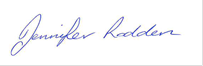 Jennifer Rodden